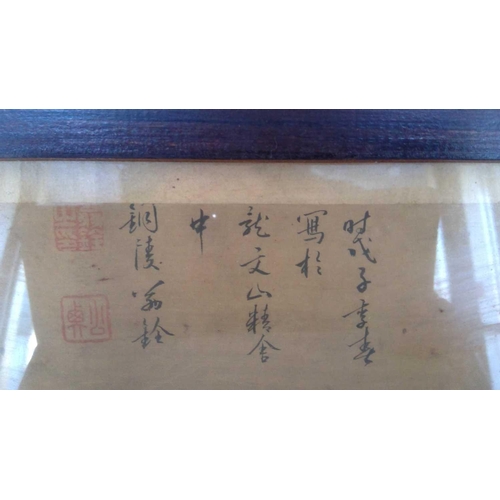 時戊子季春
寫於
龍文山精舍
中
銅陵翁銓